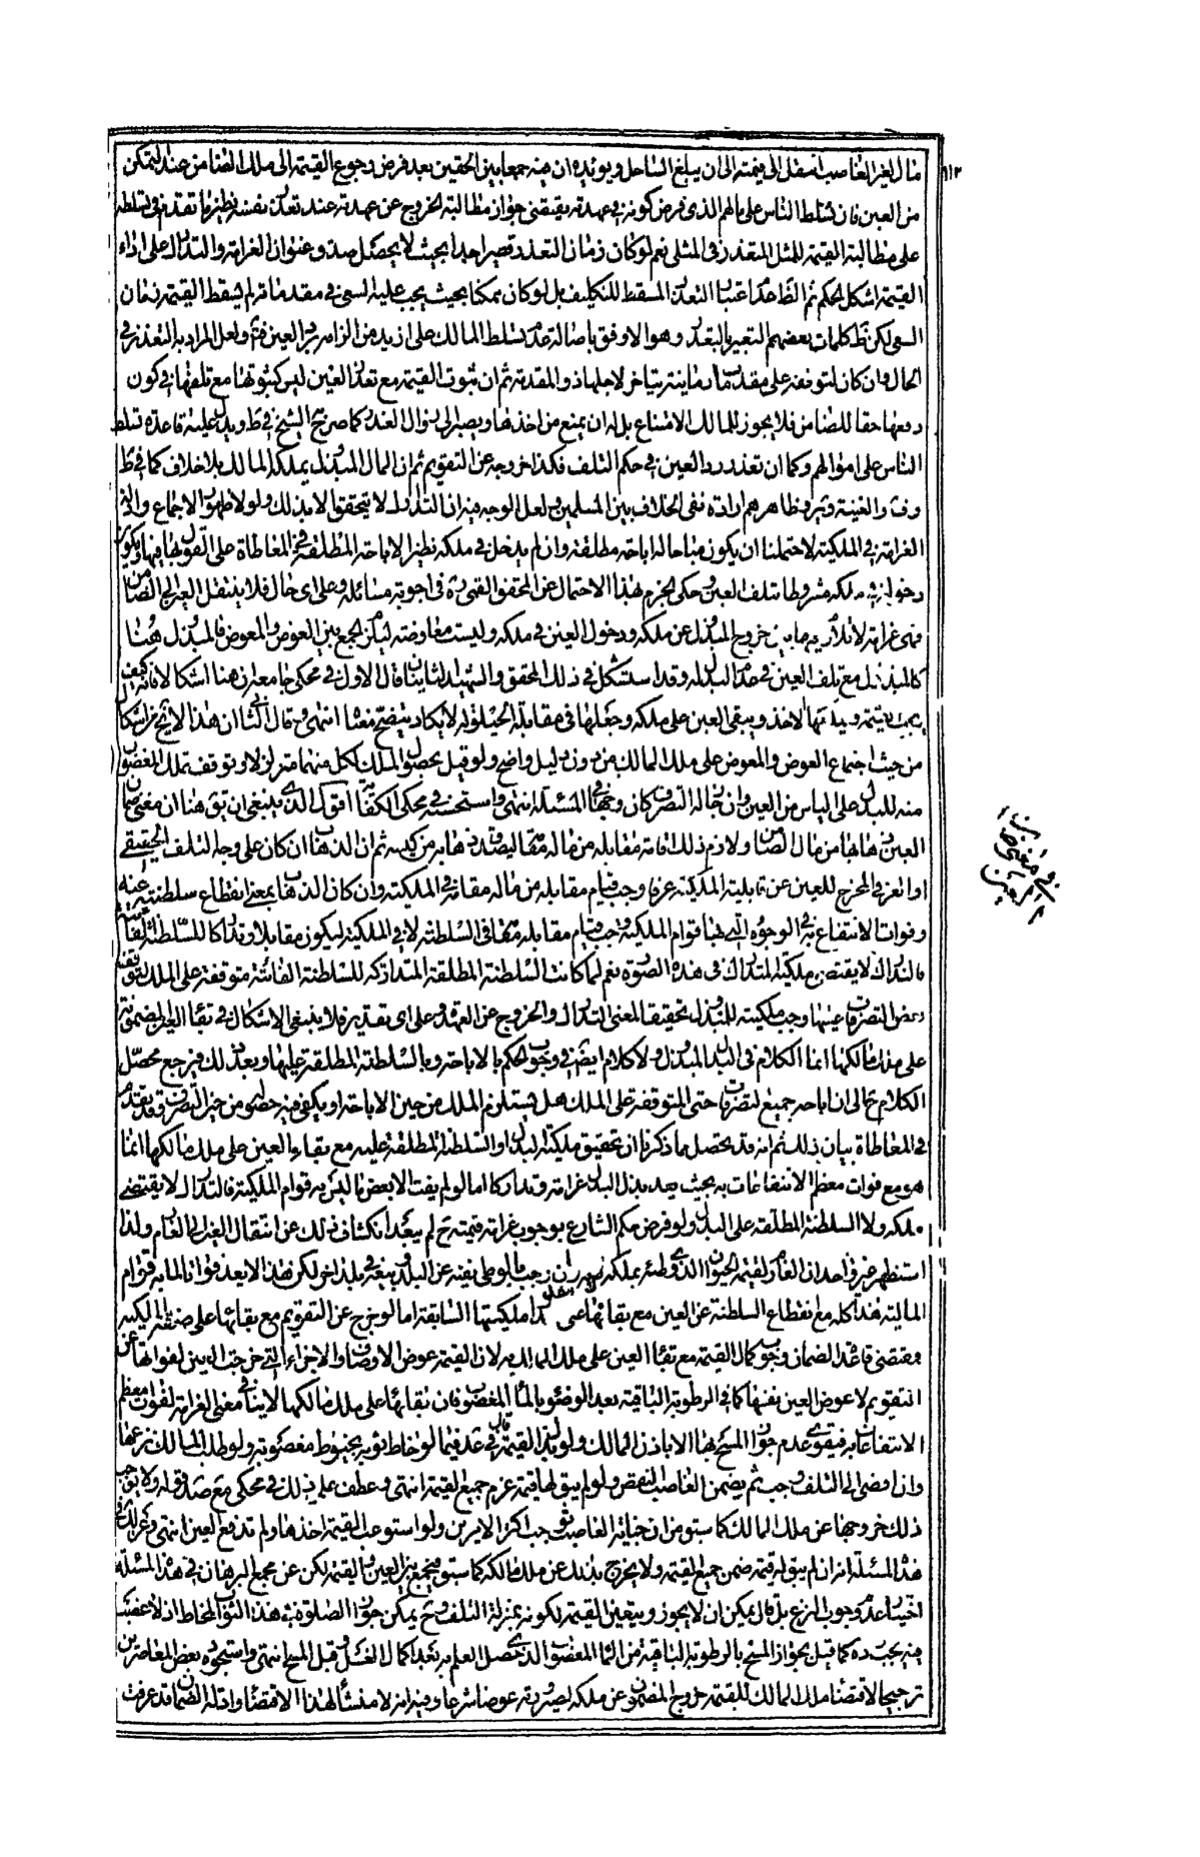 ١١٣
مال لغير الغاصب انتقل الى قيمته الى ان يبلغ الساحل ويؤيده ان فيه جمعا بين الحقين بعد فرض رجوع القيمة الى ملك الضامن عند التمكن
من العين فان تسلط الناس على مالهم الذى فرض كونه فى عهدته يقتضى جواز مطالبة الخروج عن عهدته عند تعذر نفسه نظير ما تقدم فى تسلطه
على مطالبة القيمة للمثل المتعذر فى المثلى نعم لو كان زمان التعذر قصيرا جدا بحيث لا يحصل صدق عنوان الغرامة والتدارك على اداء
القيمة اشكل الحكم ثم الظ عدم اعتبار التعذر المسقط للتكليف بل لو كان ممكنا بحيث يجب عليه السعى فى مقدماته لم يسقط القيمة زمان
السعى لكن ظ كلمات بعضهم التعبير بالتعذر وهو الاوفق باصالة عدم تسلط المالك على ازيد من الزامه برد العين فت ولعل المراد به التعذر فى
الحال وان كان لتوقفه على مقدمات زمانية يتاخر لاجلها ذو المقدمة ثم ان ثبوت القيمة مع تعذر العين ليس كثبوتها مع تلفها فى كون
دفعها حقا للضامن فلا يجوز للمالك الامتناع بل له ان يمتنع من اخذها ويصبر الى زوال العذر كما صرح به الشيخ فى ط ويدل عليه قاعدة تسلط
الناس على اموالهم وكما ان تعذر رد العين فى حكم التلف فكذا خروجه عن التقويم ثم ان المال المبذول يملكه المالك بلا خلاف كما فى ط
وف والغنية وئر وظاهرهم ارادة نفى الخلاف بين المسلمين ولعل الوجه فيه ان التدارك لا يتحقق الا بذلك ولولا ظهور الاجماع وادلة
الغرامة فى الملكية لاحتملنا ان يكون مباحا له اباحة مطلقة وان لم يدخل فى ملكه نظير الاباحة المطلقة فى المعاطاة على القول بها فيها ويكون
دخوله فى ملكه مشروطا بتلف العين وحكى الجزم بهذا الاحتمال عن المحقق القمى ره فى اجوبة مسائله وعلى اى حال فلا ينتقل العين الى الضامن
فهى غرامة لا تلازم فيها بين خروج المبذول عن ملكه ودخول العين فى ملكه وليست معاوضة ليلزم الجمع بين العوض والمعوض فالمبذول هنا
كالمبذول مع تلف العين فى عدم البدل له وقد استشكل فى ذلك المحقق والشهيد الثانيان قال الاول فى محكى جامعه ان هنا اشكالا فانه كيف
يجب القيمة ويملكها الاخذ ويبقى العين على ملكه وجعلها فى مقابلة الحيلولة لا يكاد يتضح معناه انتهى وقال الثانى ان هذا لا يخ عن اشكال
من حيث اجتماع العوض والمعوض على ملك المالك من دون دليل واضح ولو قيل بحصول الملك لكل منهما متزلزلا وتوقف تملك المغصوب
منه للبدل على الياس من العين وان جاز له التصرف كان وجها فى المسئلة انتهى واستحسنه فى محكى الكفاية اقول الذى ينبغى ان يق هنا ان معنى ضمان
العين ذهابها من مال الضامن ولازم ذلك اقامة مقابله من ماله مقامه ليصدق ذهابه من كيسه ثم ان الذهاب ان كان على وجه التلف الحقيقى
او العرفى المخرج للعين عن قابلية الملكية عرفا وجب قيام مقابله من ماله مقامه فى الملكية وان كان الذهاب بمعنى انقطاع سلطنته عنه
وفوات الانتفاع به فى الوجوه التى بها قوام الملكية وجب قيام مقابله مقامه فى السلطنة لا فى الملكية ليكون مقابلا وتداركا للسلطنة الفائتة
فالتدارك لا يقتضى ملكية المتدارك فى هذه الصورة نعم لما كانت السلطنة المطلقة المتداركة للسلطنة الفائتة متوقفة على الملك لتوقف
بعض التصرفات عليها وجب ملكيته للمبذول تحقيقا لمعنى التدارك والخروج عن العهدة وعلى اى تقدير فلا ينبغى الاشكال فى بقاء العين المضمونة
على ملك مالكها انما الكلام فى البدل المبذول ولا كلام ايض فى وجوب الحكم بالاباحة وبالسلطنة المطلقة عليها وبعد ذلك فيرجع محصل
الكلام ح الى ان اباحة جميع التصرفات حتى المتوقفة على الملك هل يستلزم الملك من حين الاباحة او يكفى فيه حصوله من حين التصرف وقد تقدم
فى المعاطاة بيان ذلك ثم انه قد تحصل مما ذكرنا ان تحقيق ملكية البدل او السلطنة المطلقة عليه مع بقاء العين على ملك مالكها انما
هو مع فوات معظم الانتفاعات به بحيث يعد بذل البدل غرامة وتداركا اما لو لم يفت الا بعض ما ليس به قوام الملكية فالتدارك لا يقتضى
ملكه ولا السلطنة المطلقة على البدل ولو فرض حكم الشارع بوجوب غرامة قيمته ح لم يبعد انكشاف ذلك عن انتقال العين الى الغارم ولذا
استظهر غير واحد ان الغارم لقيمة الحيوان الذى وطئه يملكه لانه وان وجب بالوطى نفيه عن البلد وبيعه فى بلد اخر لكن هذا لا يعد فواتا لما به قوام
المالية هذا كله مع انقطاع السلطنة عن العين مع بقائها على ملكيتها السابقة اما لو خرج عن التقويم مع بقائها على صفة الملكية
فمقتضى قاعدة الضمان وجوب كمال القيمة مع بقاء العين على ملك المالك لان القيمة عوض الاوصاف او الاجزاء التى خرجت العين لفواتها عن
التقويم لا عوض العين نفسها كما فى الرطوبة الباقية بعد الوضوء بالماء المغصوب فان بقائها على ملك مالكها لا ينافى معنى الغرامة لفوات معظم
الانتفاعات به فيقوى عدم جواز المسح بها الا باذن المالك ولو بذل القيمة قال فى عد فيما لو خاط ثوبه بخيوط مغصوبة ولو طلب المالك نزعها
وان افضى الى التلف وجب ثم يضمن الغاصب النقص ولو لم يبق لها قيمة غرم جميع القيمة انتهى وعطف على ذلك فى محكى مع صد قوله ولا يوجب
ذلك خروجها عن ملك المالك كما سبق من ان جناية الغاصب توجب اكثر الامرين ولو استوعب القيمة اخذها ولم تدفع العين انتهى وعن لك فى
هذه المسئلة انه ان لم يبق له قيمة ضمن جميع القيمة ولا يخرج بذلك عن ملك مالكه كما سبق فيجمع بين العين والقيمة لكن عن مجمع البرهان فى هذه المسئلة
اختيار عدم وجوب النزع بل قال يمكن ان لا يجوز ويتعين القيمة لكونه بمنزلة التلف وح يمكن جواز الصلوة فى هذا الثوب المخاط اذ لا غصب
فيه يجب رده كما قيل بجواز المسح بالرطوبة الباقية من الماء المغصوب الذى حصل العلم به بعد اكمال الغسل وقبل المسح انتهى واستجوده بعض المعاصرين
ترجيحا لاقتضاء ملك المالك للقيمة خروج المضمون عن ملكه لصيرورته عوضا شرعا وفيه انه لا منشأ لهذا الاقتضاء وادلة الضمان قد عرفت